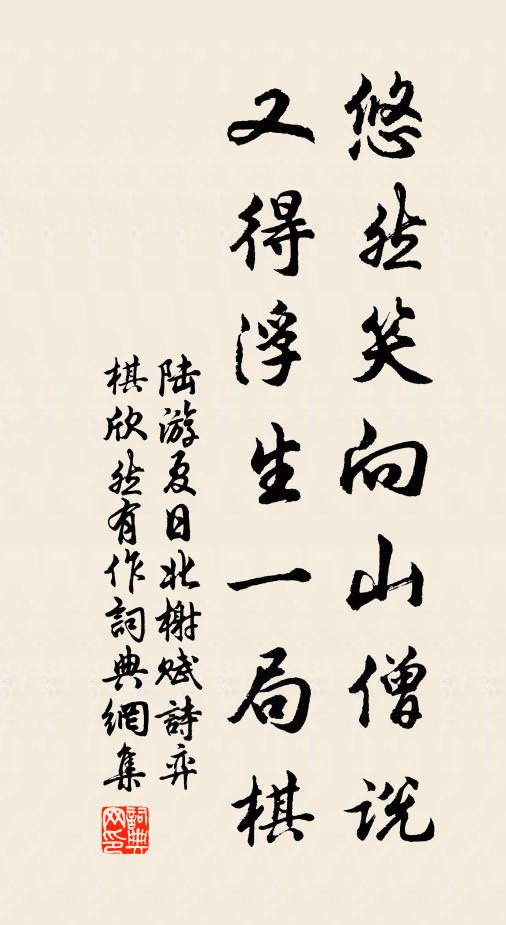 悠然笑向山僧説
又得浮生一局棋
陆游夏日北榭赋詩弈
棋欣然有作詞典網集
詞典
网印